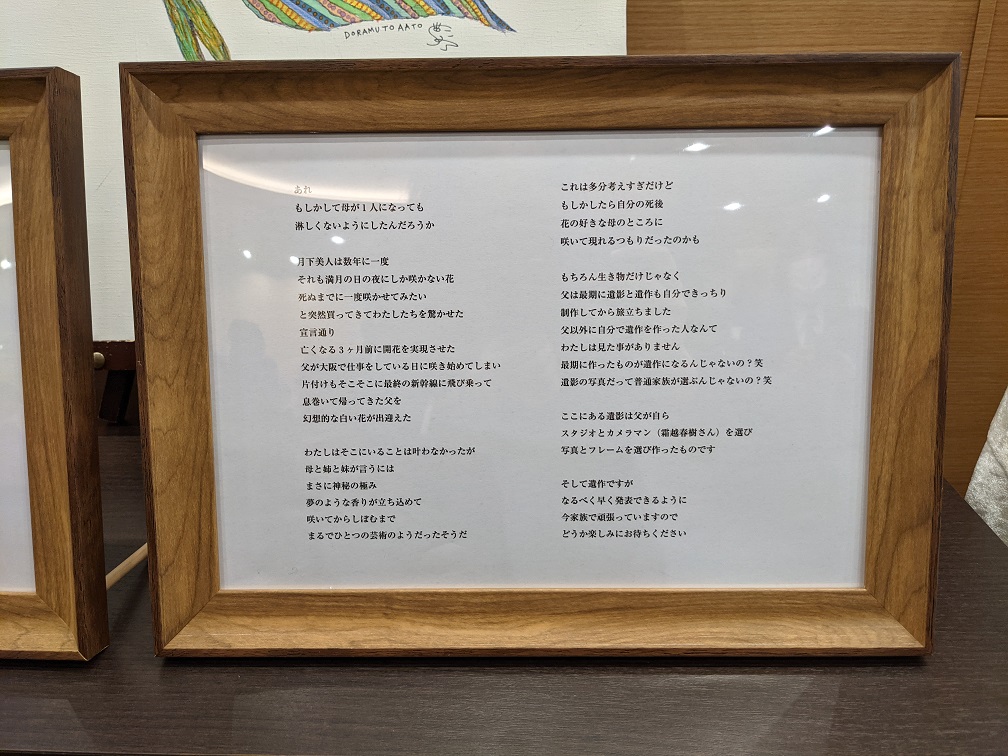 DORAMUTOAATO
あれ
もしかして母が1人になっても
淋しくないようにしたんだろうか
月下美人は数年に一度
それも満月の日の夜にしか咲かない花
死ぬまでに一度咲かせてみたい
と突然買ってきてわたしたちを驚かせた
宣言通り
亡くなる3ヶ月前に開花を実現させた
父が大阪で仕事をしている日に咲き始めてしまい
片付けもそこそこに最終の新幹線に飛び乗って
息巻いて帰ってきた父を
幻想的な白い花が出迎えた
わたしはそこにいることは叶わなかったが
母と姉と妹が言うには
まさに神秘の極み
夢のような香りが立ち込めて
咲いてからしぼむまで
まるでひとつの芸術のようだったそうだ
これは多分考えすぎだけど
もしかしたら自分の死後
花の好きな母のところに
咲いて現れるつもりだったのかも
もちろん生き物だけじゃなく
父は最期に遺影と遺作も自分できっちり
制作してから旅立ちました
父以外に自分で遺作を作った人なんて
わたしは見た事がありません
最期に作ったものが遺作になるんじゃないの？笑
遺影の写真だって普通家族が選ぶんじゃないの？笑
ここにある遺影は父が自ら
スタジオとカメラマン（霜越春樹さん）を選び
写真とフレームを選び作ったものです
そして遺作ですが
なるべく早く発表できるように
今家族で頑張っていますので
どうか楽しみにお待ちください